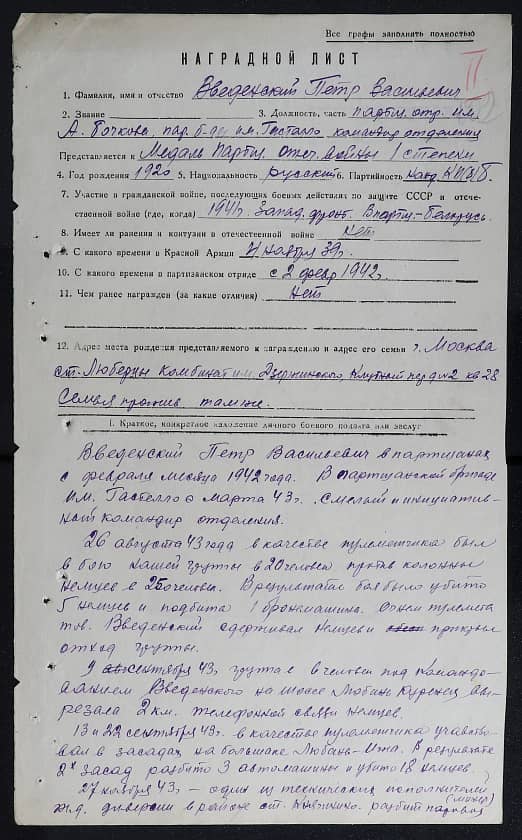 Все графы заполнять полностью
НАГРАДНОЙ ЛИСТ
II
1. Фамилия, имя и отчество Введенский Петр Васильевич
2. Звание 3. Должность, часть партиз. отр. им.
А. Бочкова, пар. б-ды им. Гастелло командир отделения
Представляется к Медаль Партиз. отеч. войны I степени
4. Год рождения 1920 5. Национальность русский 6. Партийность канд. ВКП/б
7. Участие в гражданской войне, последующих боевых действиях по защите СССР и отече-
ственной войне (где, когда) 1941г. Запад. фронт. В парти.-Белорусь.
8. Имеет ли ранения и контузии в отечественной войне Нет
9. С какого времени в Красной Армии ноября 39г.
10. С какого времени в партизанском отряде с 2 февр 1942г.
11. Чем ранее награжден (за какие отличия) нет
12. Адрес места рождения представляемого к награждению и адрес его семьи г. Москва
ст. Люберцы Комбинат им. Дзержинского, Клубный пер д №2 кв 28
Семья прожив. там же.
I. Краткое, конкретное изложение личного боевого подвига или заслуг
Введенский Петр Васильевич в партизанах
с февраля месяца 1942 года. В партизанской бригаде
им. Гастелло с марта 43 г. Смелый и инициатив-
ный командир отделения.
26 августа 43 года в качестве пулеметчика был
в бою нашей группы в 20 человек против колонны
немцев в 250 человек. В результате боя было убито
5 немцев и подбита 1 бронемашина. Огнем пулемета
тов. Введенский сдерживал немцев и прикрыл
отход группы.
9 сентября 43г. группа в человек под командо-
ванием Введенского на шоссе Любань Куренец вы-
резала 2 км. телефонной связи немцев.
13 и 22 сентября 43г. в качестве пулеметчика участво-
вал в засадах на большаке Любань-Илжа. В результате
2х засад разбито 3 автомашины и убито 18 немцев.
27 ноября 43г. - один из технических исполнителей
(минер)
ж.д. диверсии в районе ст. Княжино. разбит паровоз